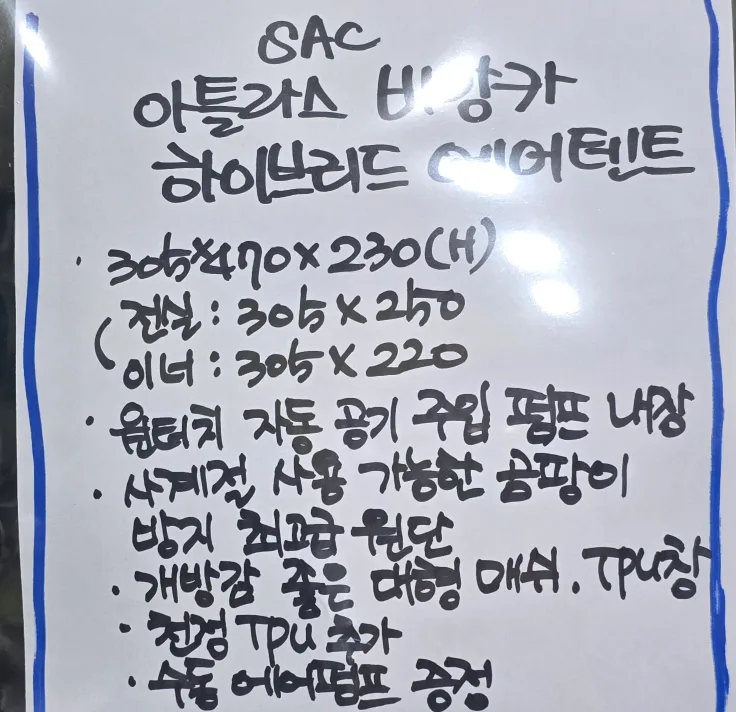 SAC
아틀라스 비앙카
하이브리드 에어텐트
· 305×470×230(H)
전실 : 305×250
이너 : 305×220
· 원터치 자동 공기 주입 펌프 내장
· 사계절 사용 가능한 곰팡이
방지 최고급 원단
· 개방감 좋은 대형 매쉬. TPU창
· 천정 TPU 추가
· 수동 에어펌프 증정